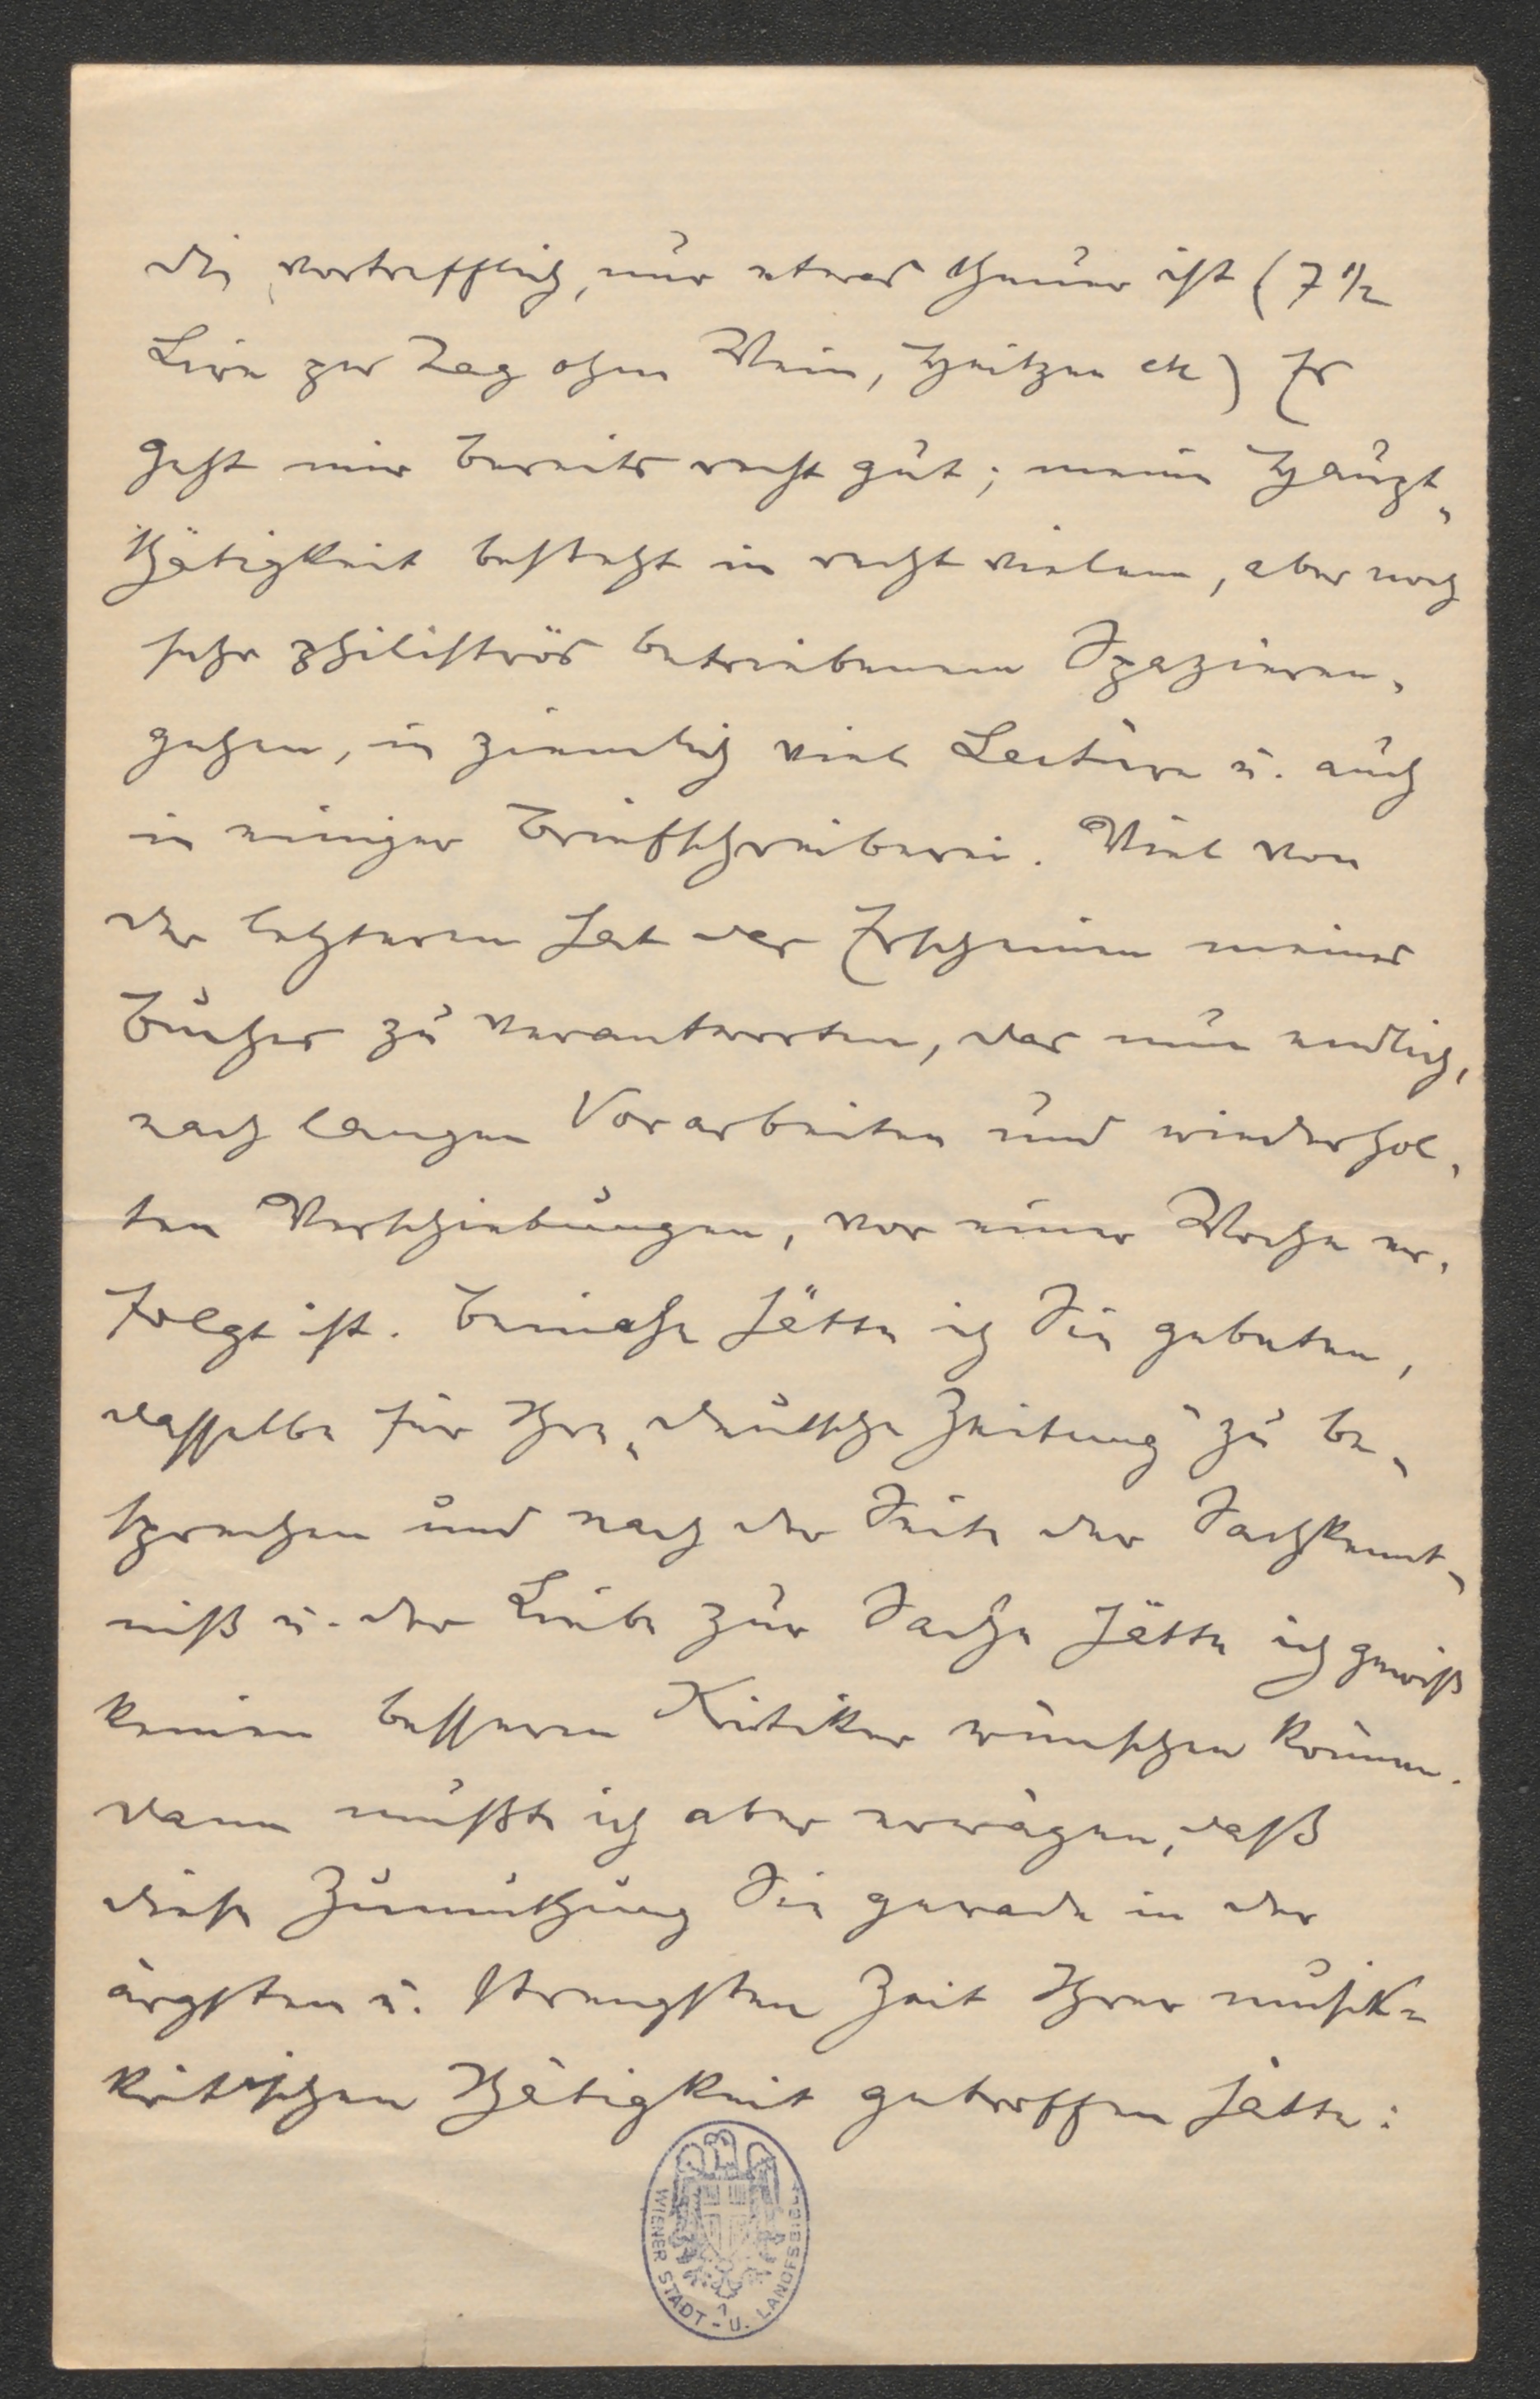 die vortrefflich, nur etwas theuer ist (7 1/2
Lire per Tag ohne Wein, Heitzen etc) Es
geht mir bereits recht gut; meine Haupt„
thätigkeit besteht in recht vielem, aber noch
sehr philiströs betriebenem Spazieren„
gehen, in ziemlich viel Lectüre u. auch
in einiger Briefschreiberei. Viel von
der letzteren hat das Erscheinen meines
Buches zu verantworten, das nun endlich,
nach langen Vorarbeiten und wiederhol„
ten Verschiebungen, vor einer Woche er„
folgt ist. Beinahe hätte ich Sie gebeten,
dasselbe für Ihre „deutsche Zeitung“ zu be„
sprechen und nach der Seite der Sachkennt„
niß u. der Liebe zur Sache hätte ich gewiß
keinen besseren Kritiker wünschen können.
Dann mußte ich aber erwägen, daß
diese Zumuthung Sie gerade in der
ärgsten u. strengsten Zeit Ihrer musik=
kritischen Thätigkeit getroffen hätte:
WIENER STADT-U. LANDESBIBL.